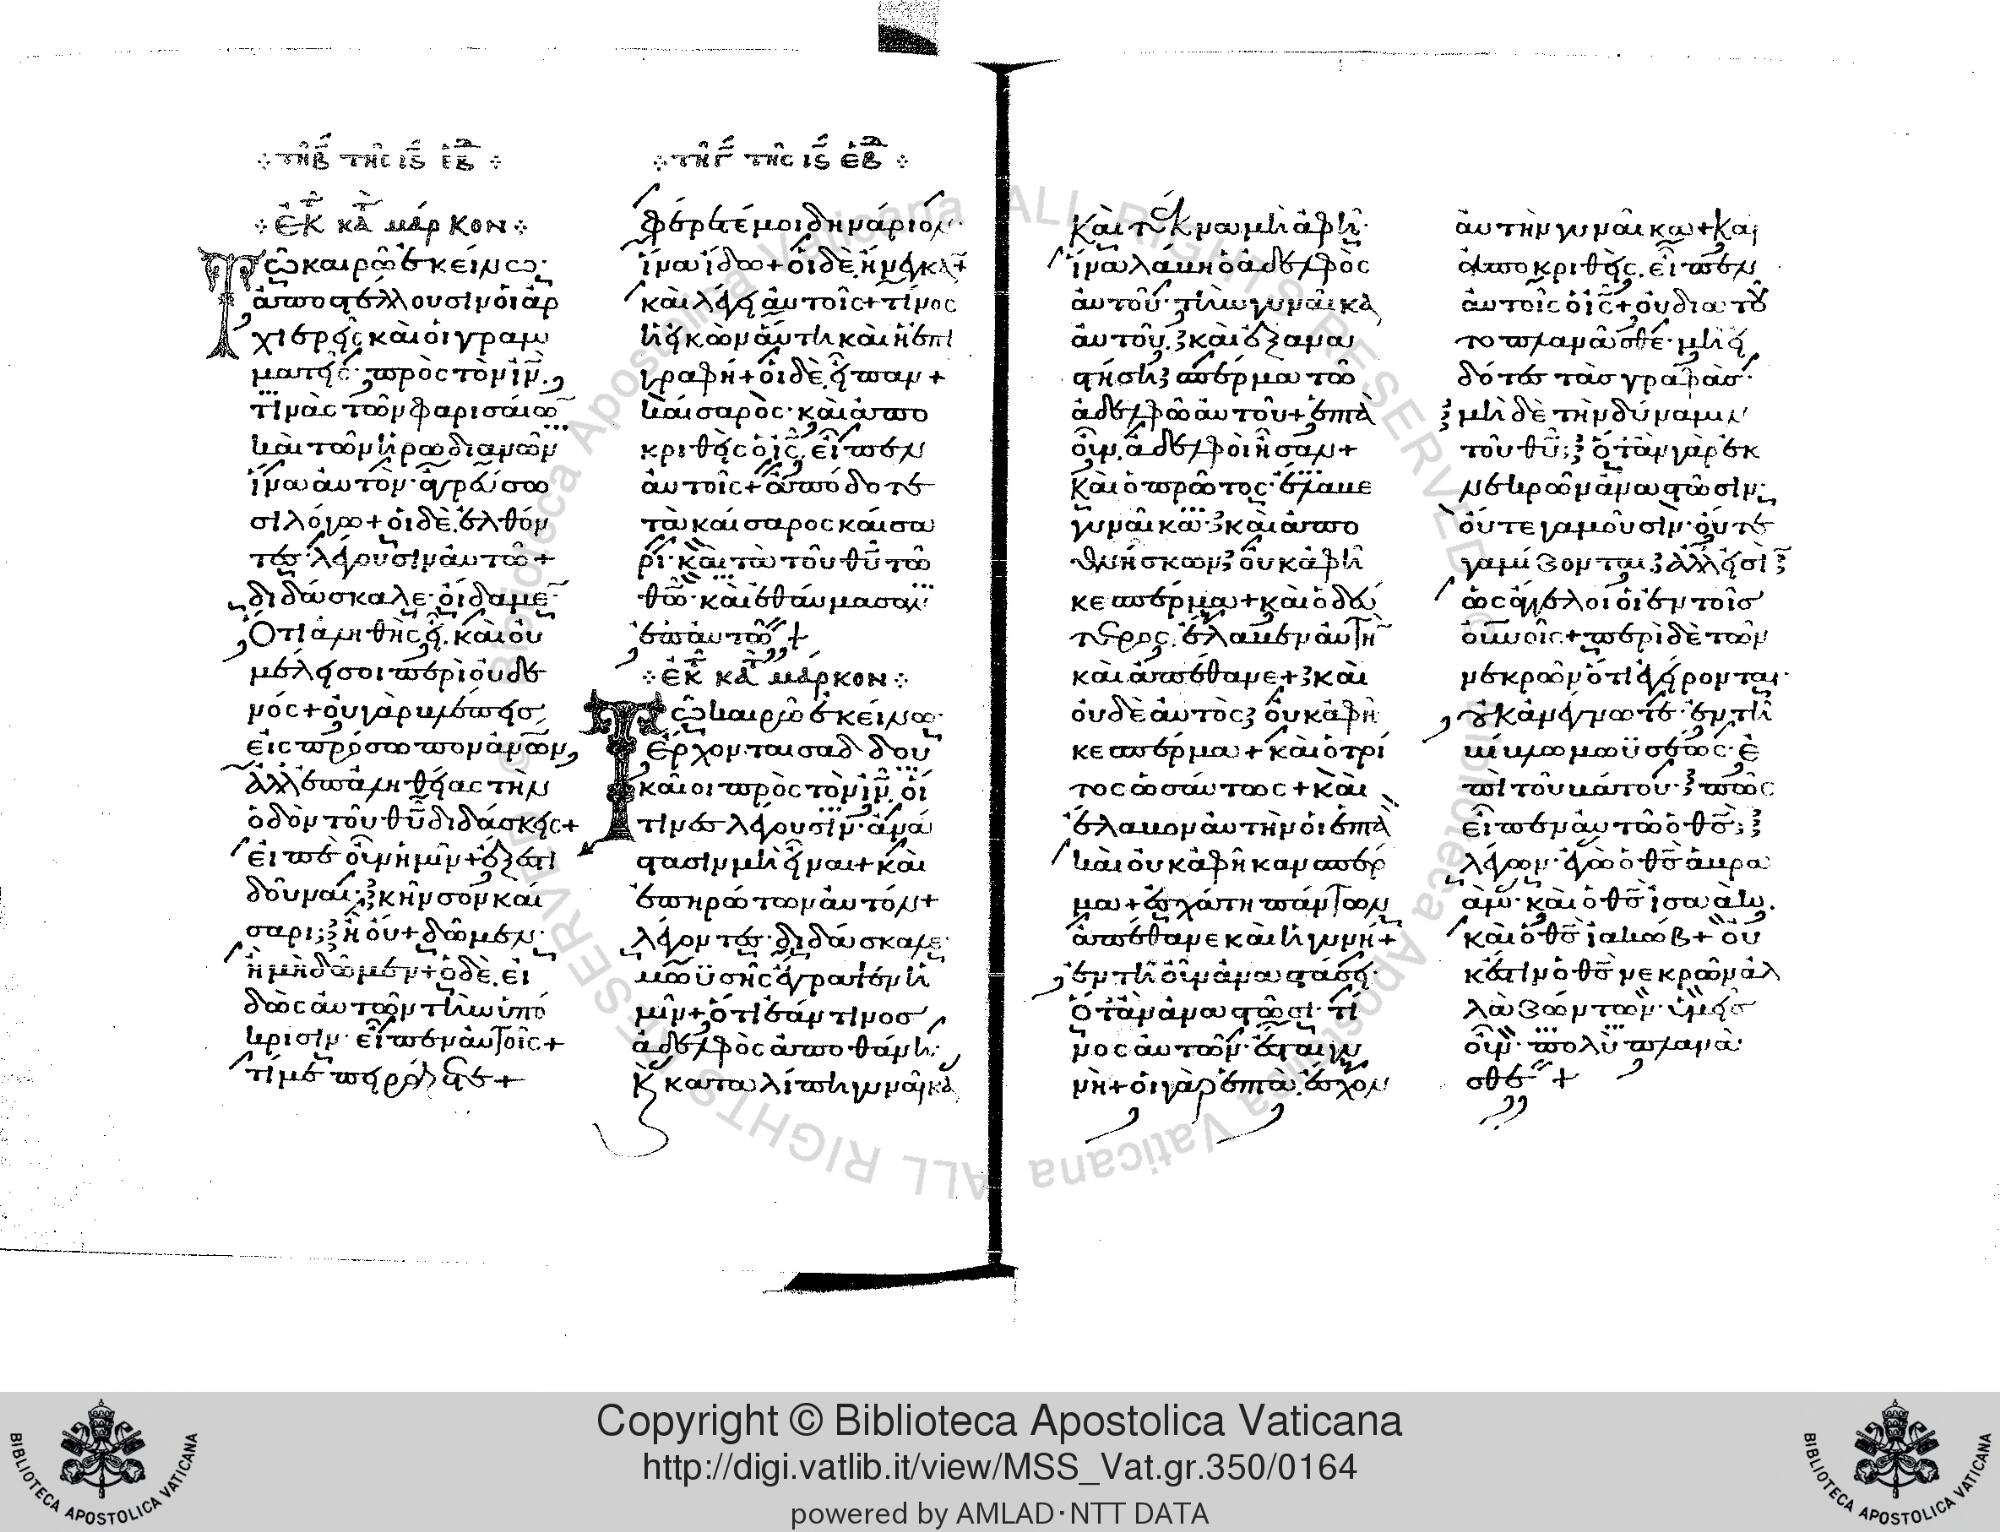 τῆ β τῆς ις ἑβ
ἐκ κατ μάρκον
Τῶ καιρῶ ἐκείνω·
ἀποστέλλουσιν οἱ ἀρ
χιερεῖς καὶ οἱ γραμ
ματεῖς· πρὸς τὸν ἰν̄.
τινὰς τῶν φαρισαίω
καὶ τῶν ἡρωδιανῶν
ἵνα αὐτὸν· ἀγρεύσω
σι λόγω + οἱ δὲ. ἐλθόν
τες· λέγουσιν αὐτῶ +
διδάσκαλε· οἴδαμε
Ὅτι ἀληθὴς εἶ. καὶ οὐ
μέλει σοι περὶ οὐδε
νός + οὐ γὰρ βλέπεις
εἰς πρόσωπον ἀνῶν,
ἀλλ' ἐπ' ἀληθείας τὴν
ὁδὸν τοῦ θῦ διδάσκεις +
εἰπὲ οὖν ἡμῖν + ἔξεστι
δοῦναι· κῆνσον καί
σαρι; ἢ οὔ + δῶμεν·
ἢ μὴ δῶμεν + ὁ δὲ. εἰ
δὼς αὐτῶν τὴν ὑπό
κρισιν· εἶπεν αὐτοῖς +
τί με πειράζετε +
τῆ γ τῆς ις ἑβ
φέρετέ μοι δηνάριον·
ἵνα ἴδω + οἱ δὲ. ἤνεγκαν +
καὶ λέγει αὐτοῖς + τίνος
ἡ εἰκὼν αὕτη καὶ ἡ ἐπι
γραφή + οἱ δὲ. εἶπαν +
καίσαρος· καὶ ἀπο
κριθεὶς ὁ ἰς̄. εἶπεν
αὐτοῖς + ἀπόδοτε
τὰ καίσαρος καίσα
ρι· καὶ τὰ τοῦ θῦ τῶ
θῶ· καὶ ἐθαύμασαν
ἐπ' αὐτῶ +
ἐκ κατ μάρκον
Τῶ καιρῶ ἐκείνω·
Ἔρχονται σαδδου
καῖοι πρὸς τὸν ἰν̄. οἵ
τινες λέγουσιν· ἀνά
στασιν μὴ εἶναι + καὶ
ἐπηρώτων αὐτόν +
λέγοντες· διδάσκαλε·
μωϋσῆς ἔγραψεν ἡ
μῖν + ὅτι ἐάν τινος
ἀδελφὸς ἀποθάνη·
κ καταλίπη γυναῖκα
καὶ τέκνα μὴ ἀφῆ·
ἵνα λάβη ὁ ἀδελφὸς
αὐτοῦ· τὴν γυναῖκα
αὐτοῦ. καὶ ἐξανα
στήση σπέρμα τῶ
ἀδελφῶ αὐτοῦ + ἑπτὰ
οὖν. ἀδελφοὶ ἦσαν +
καὶ ὁ πρῶτος· ἔλαβε
γυναῖκα· καὶ ἀπο
θνήσκων οὐκ ἀφῆ
κε σπέρμα + καὶ ὁ δεύ
τερος. ἔλαβεν αὐτὴν
καὶ ἀπέθανε + καὶ
οὐδὲ αὐτὸς οὐκ ἀφῆ
κε σπέρμα + καὶ ὁ τρί
τος ὡσαύτως + καὶ
ἔλαβον αὐτὴν οἱ ἑπτὰ
καὶ οὐκ ἀφῆκαν σπέρ
μα + ἐσχάτη πάντων
ἀπέθανε καὶ ἡ γυνή +
ἐν τῆ οὖν ἀναστάσει·
Ὅταν ἀναστῶσι· τί
νος αὐτῶν· ἔσται γυ
νὴ + οἱ γὰρ ἑπτὰ. ἔσχον
αὐτὴν γυναῖκα + καὶ
ἀποκριθεὶς. εἶπεν
αὐτοῖς ὁ ἰς̄ + οὐ διὰ τοῦ
το πλανᾶσθε· μὴ εἰ
δότες τὰς γραφὰς·
μὴ δὲ τὴν δύναμιν
τοῦ θῦ; ὅταν γὰρ ἐκ
νεκρῶν ἀναστῶσιν·
οὔτε γαμοῦσιν· οὔτε
γαμίζονται· ἀλλ' εἰσὶ
ὡς ἄγγελοι οἱ ἐν τοῖς
οὐνοῖς + περὶ δὲ τῶν
νεκρῶν ὅτι ἐγείρονται·
οὐκ ἀνέγνωτε· ἐν τῆ
βίβλω μωϋσέως· ἐ
πὶ τοῦ βάτου· πῶς
εἶπεν αὐτῶ ὁ θς̄;
λέγων· ἐγὼ ὁ θς̄ ἀβρα
ὰμ· καὶ ὁ θς̄ ἰσαὰκ.
καὶ ὁ θς̄ ἰακώβ + οὐ
κ ἔστιν ὁ θς̄ νεκρῶν ἀλ
λὰ ζώντων· ὑμεῖς
οὖν· πολὺ πλανᾶ
σθε +
Copyright © Biblioteca Apostolica Vaticana
http://digi.vatlib.it/view/MSS_Vat.gr.350/0164
powered by AMLAD·NTT DATA
BIBLIOTECA APOSTOLICA VATICANA
BIBLIOTECA APOSTOLICA VATICANA